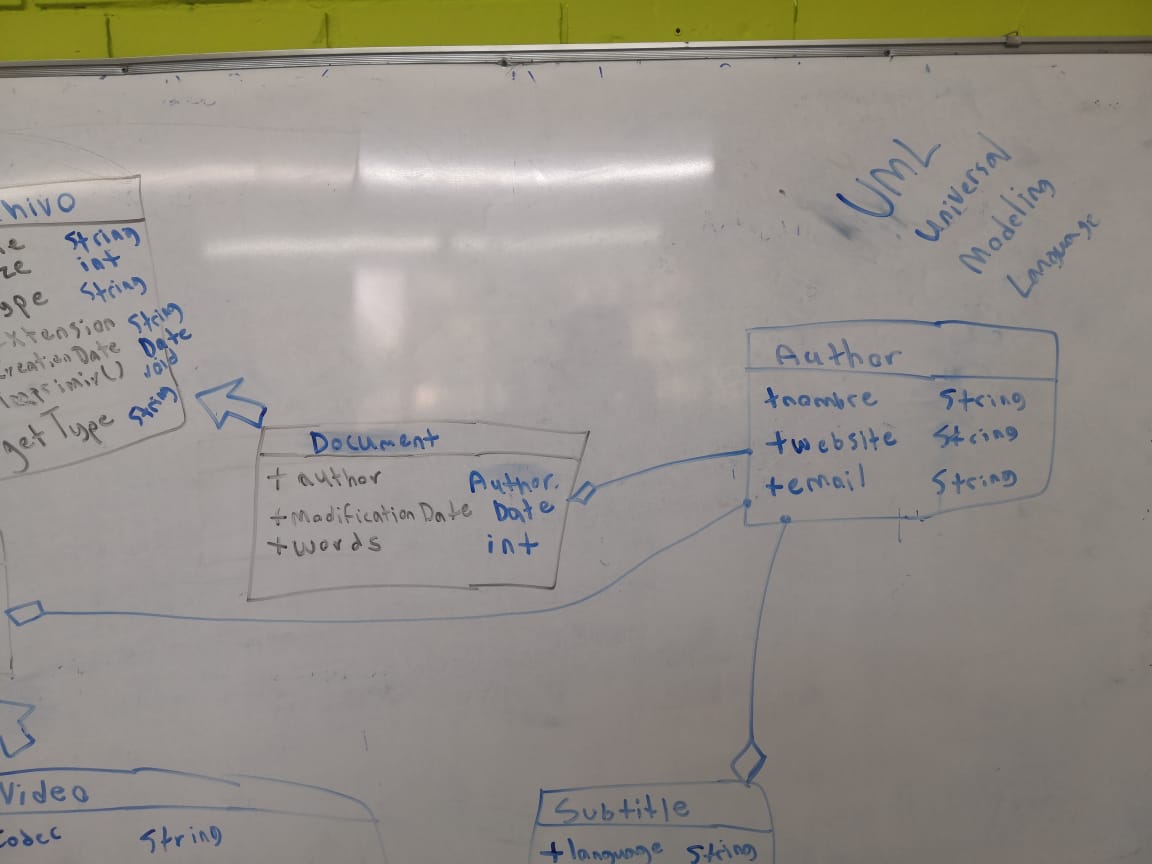 UML
Universal
Modeling
Language
hivo
e String
ze int
ype String
extension String
creationDate Date
imprimir() void
getType String
Document
+ author Author.
+ModificationDate Date
+words int
Author
+nombre String
+website String
+email String
Video
codec String
Subtitle
+language String